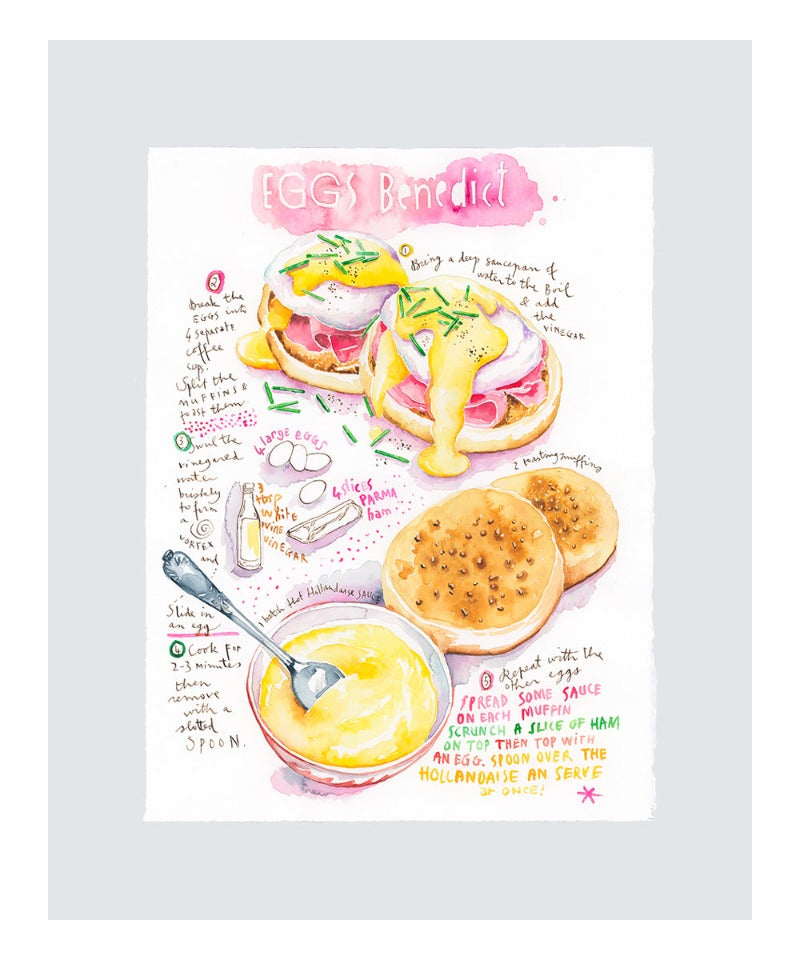 EGGS Benedict
1
Bring a deep saucepan of
water to the Boil
& add
the
VINEGAR
2
Break the
EGGS into
4 separate
coffee
cup.
Split the
MUFFINS &
toast them.
3
Swirl the
vinegared
water
briskly
to form
a
VORTEX
and
Slide in
an egg
4
Cook For
2-3 minutes
then
remove
with a
slotted
SPOON.
4 large EGGS
3
tbsp
White
wine
VINEGAR
4 slices
PARMA
ham
2 toasting muffins
1 batch Hot Hollandaise SAUCE
5
Repeat with the
other eggs
SPREAD SOME SAUCE
ON EACH MUFFIN
SCRUNCH A SLICE OF HAM
ON TOP THEN TOP WITH
AN EGG. SPOON OVER THE
HOLLANDAISE AN SERVE
at ONCE!